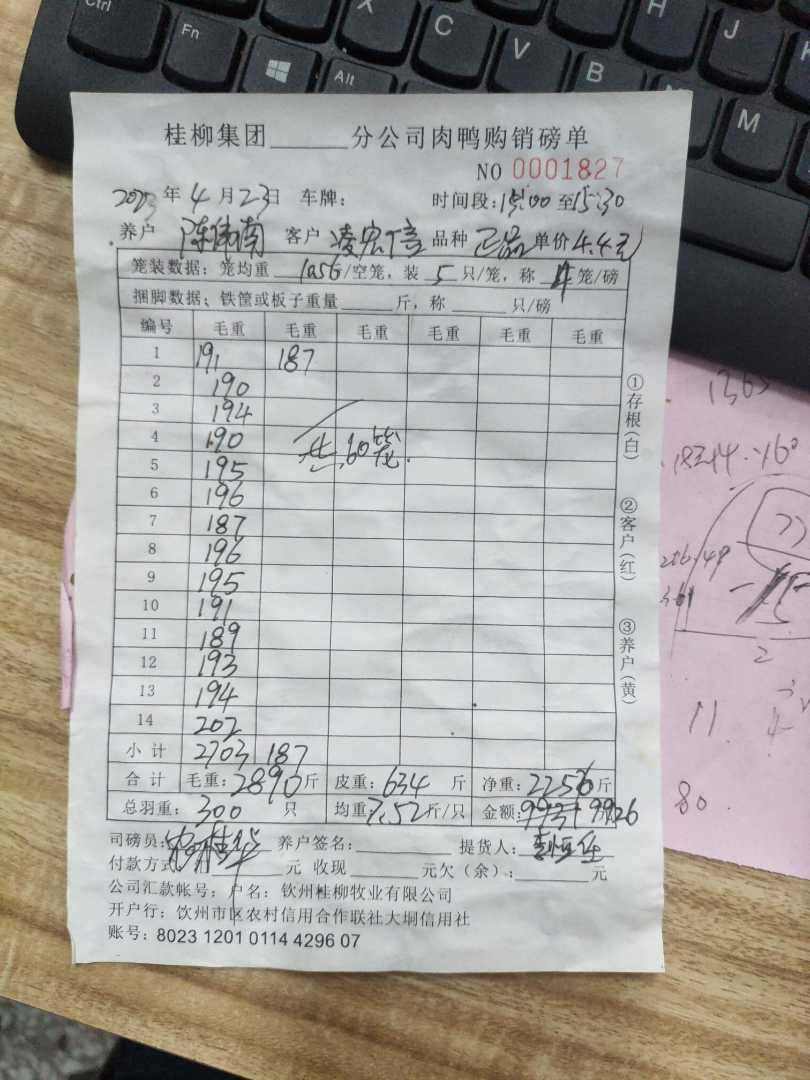 Ctrl Fn Alt X C V B H N J M
桂柳集团______分公司肉鸭购销磅单
NO 0001827
2023年4月23日 车牌: 时间段:15:00至15:30
养户 陈伟南 客户 凌宏信 品种 正品 单价 4.4元
笼装数据: 笼均重 1056/空笼, 装 5 只/笼, 称 4 笼/磅
捆脚数据: 铁筐或板子重量______斤, 称______只/磅
编号 毛重 毛重 毛重 毛重 毛重 毛重
1 191 187
2 190
3 194
4 190 共60笼.
5 195
6 196
7 187
8 196
9 195
10 191
11 189
12 193
13 194
14 202
小计 2703 187
合计 毛重:2890斤 皮重:634斤 净重:2256斤
总羽重: 300 只 均重7.52斤/只 金额: 9926
司磅员: 养户签名:______ 提货人:
付款方式:______元 收现______元欠(余):______元
公司汇款帐号: 户名: 钦州桂柳牧业有限公司
开户行: 钦州市区农村信用合作联社大垌信用社
账号: 8023 1201 0114 4296 07
①存根(白)
②客户(红)
③养户(黄)
2
11
80